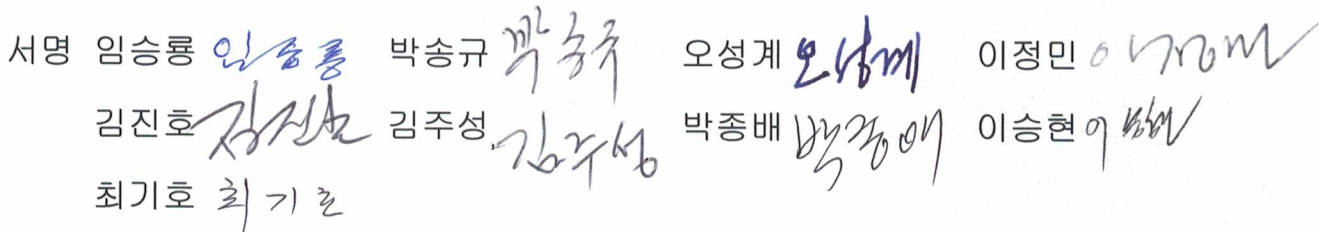 서명 임승룡 임승룡 박송규 박송규 오성계 오성계 이정민 이정민
김진호 김진호 김주성 김주성 박종배 박종배 이승현 이승현
최기호 최기호